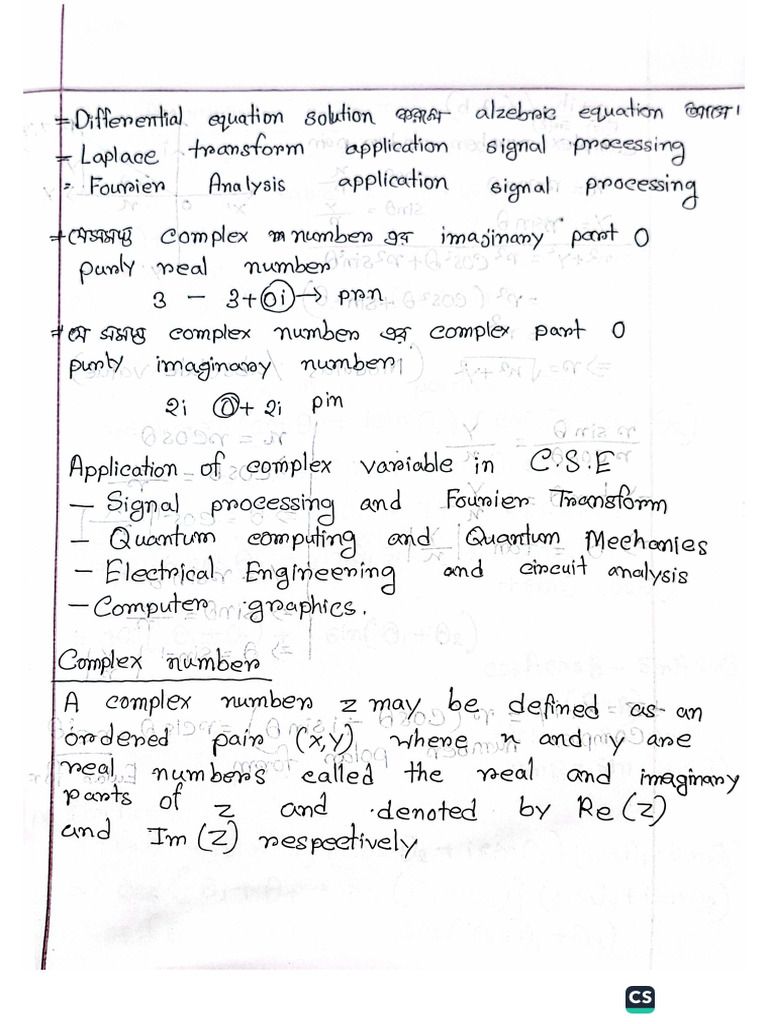 = Differential equation solution করলে alzebric equation আসে।
= Laplace transform application signal processing
= Fourier Analysis application signal processing
* যেসমস্ত complex number এর imajinary part 0
purly real number
3 - 3+0i → prn
* যে সমস্ত complex number এর complex part 0
purly imaginary number।
2i 0+ 2i pin
Application of complex variable in C.S.E
- Signal processing and Fourier Transform
- Quantum computing and Quantum Mechanies
- Electrical Engineering and circuit analysis
- Computer graphics.
Complex number
A complex number z may be defined as an
ordered pair (x,y) where x and y are
real numbers called the real and imaginary
parts of z and denoted by Re(z)
and Im(z) respectively
CS